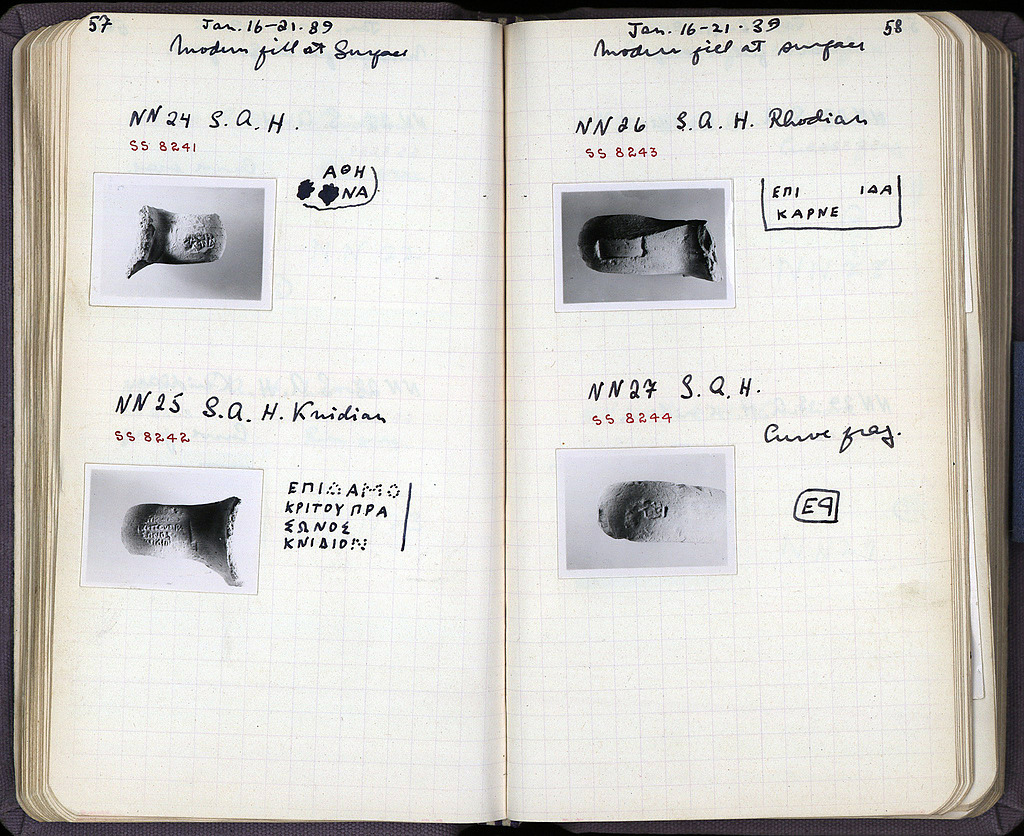 57
Jan. 16-21.89
Modern fill at Surface
NN 24 S.A.H.
SS 8241
ΑΘΗ
ΝΑ
NN 25 S.A.H. Knidian
SS 8242
ΕΠΙΔΑΜΟ
ΚΡΙΤΟΥ ΠΡΑ
ΣΩΝΟΣ
ΚΝΙΔΙΟΝ
Jan. 16-21.39
58
Modern fill at surface
NN 26 S.A.H. Rhodian
SS 8243
ΕΠΙ ΙΔΑ
ΚΑΡΝΕ
NN 27 S.A.H.
SS 8244
Curve frag.